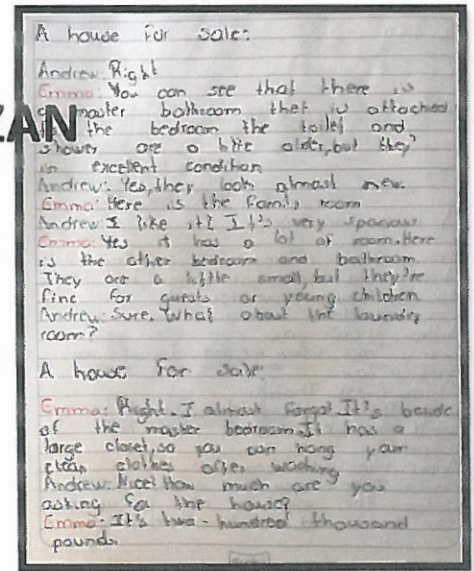 A house for sale:
Andrew: Right
Emma: You can see that there is
master bathroom that is attached
the bedroom the toilet and
shower are a little older, but they'
in excellent condition
Andrew: Yes, they look almost new.
Emma: Here is the family room
Andrew: I like it! It's very spacious
Emma: Yes it has a lot of room. Here
is the other bedroom and bathroom
They are a little small, but they're
fine for guests or young children
Andrew: Sure. What about the laundry
room?
A house for sale:
Emma: Right. I almost forgot. It's beside
of the master bedroom. It has a
large closet, so you can hang your
clean clothes after washing
Andrew: Nice! How much are you
asking for the house?
Emma: It's two-hundred thousand
pounds.
ZAN